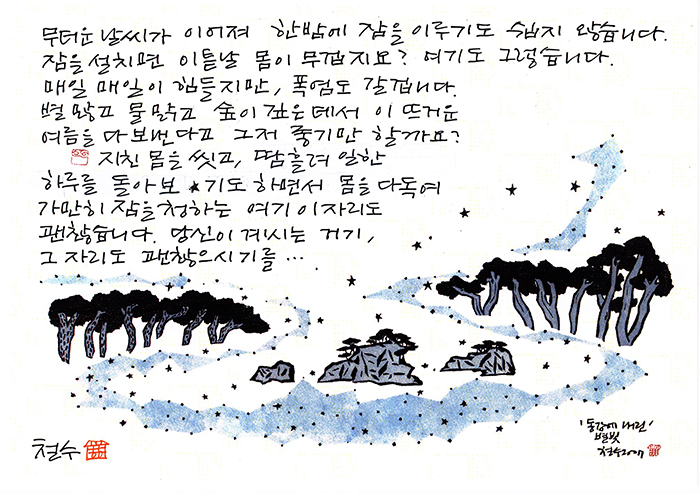 무더운 날씨가 이어져 한밤에 잠을 이루기도 쉽지 않습니다.
잠을 설치면 이튿날 몸이 무겁지요? 여기도 그렇습니다.
매일 매일이 힘들지만, 폭염도 갈겁니다.
별 많고 물 맑고 숲이 깊은 데서 이 뜨거운
여름을 다 보낸다고 그저 좋기만 할까요?
지친 몸을 씻고, 땀흘려 일한
하루를 돌아보기도 하면서 몸을 다독여
가만히 잠을 청하는 여기 이 자리도
괜찮습니다. 당신이 계시는 거기,
그 자리도 괜찮으시기를 …
철수
'동강에 내린'
별빛
철수2007